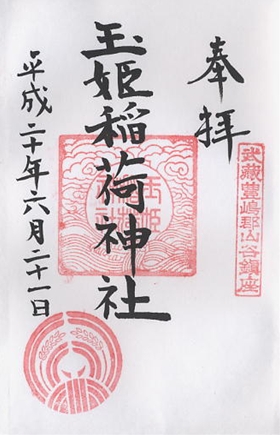 奉拝
武蔵豊嶋郡山谷鎮座
玉姫稲荷神社
平成二十年六月二十一日